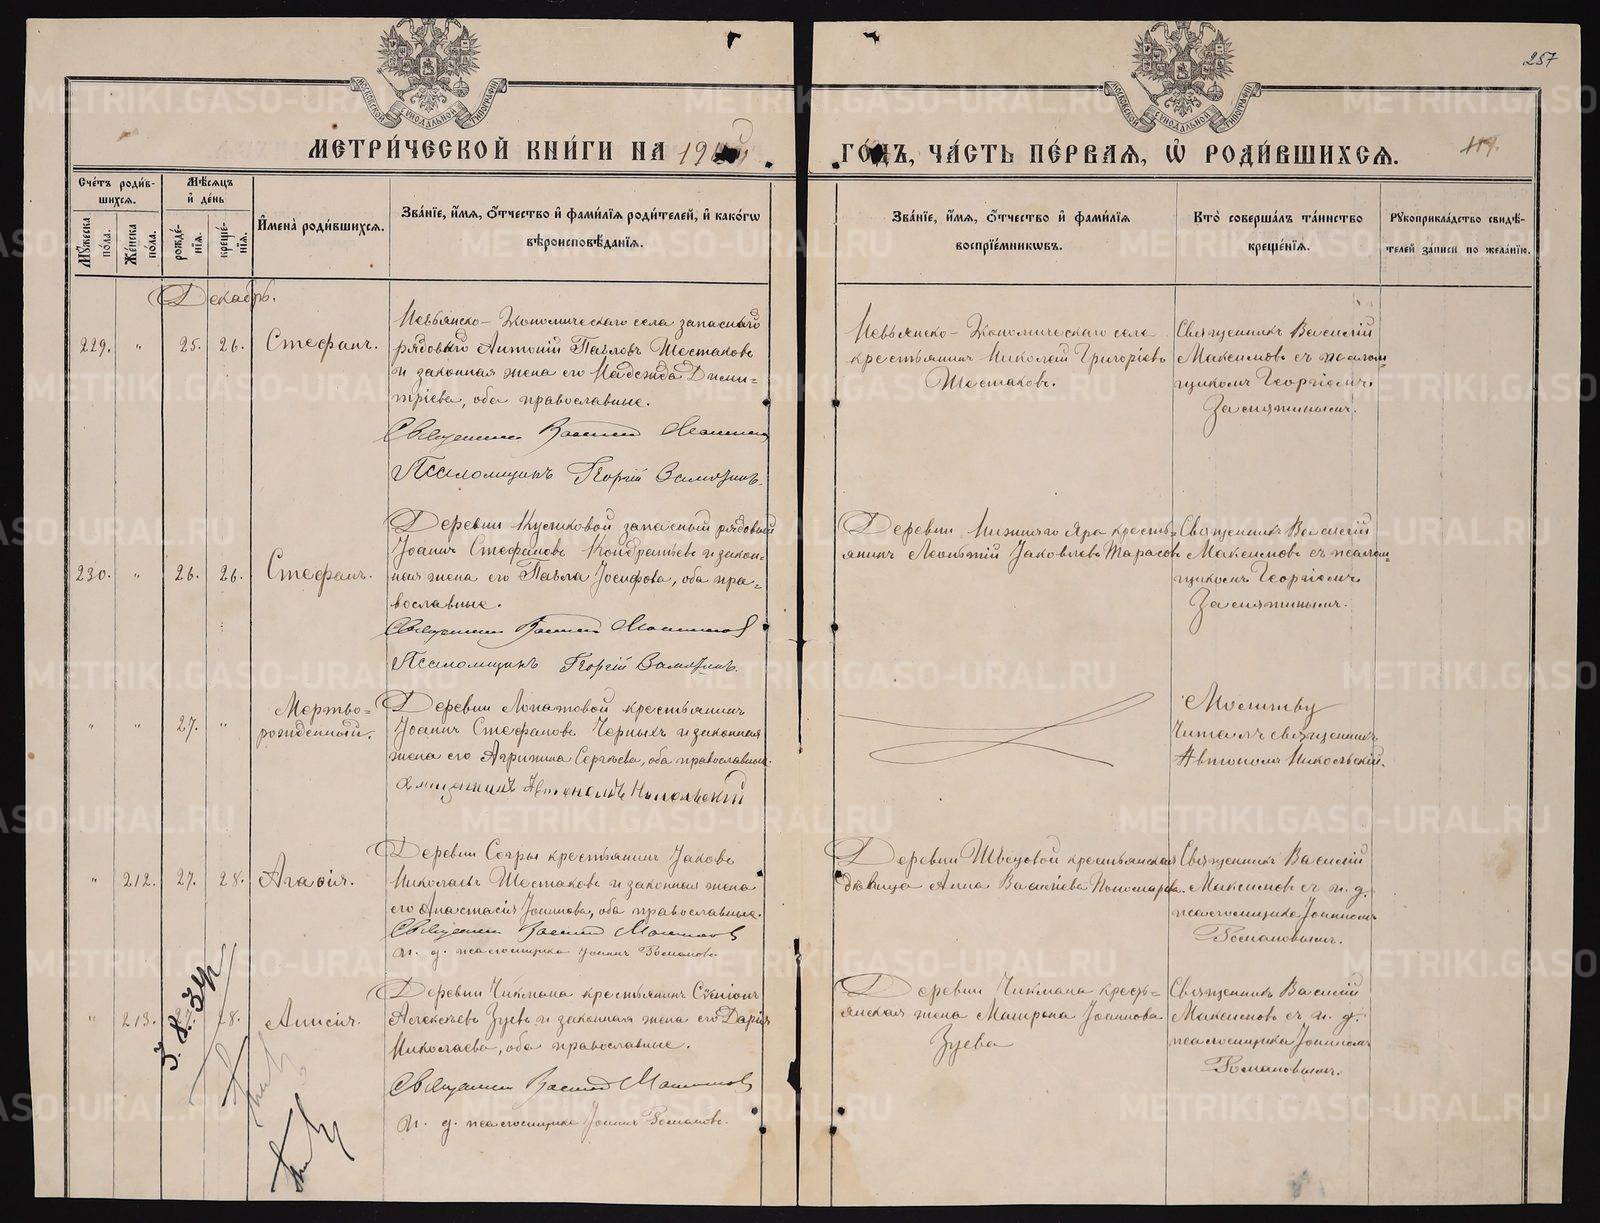 257
МОСКОВСКОЙ СѴНОДАЛЬНОЙ ТИПОГРАФІИ
МОСКОВСКОЙ СѴНОДАЛЬНОЙ ТИПОГРАФІИ
МЕТРИ́ЧЕСКОЙ КНИ́ГИ НА 19
ГО́ДЪ, ЧА́СТЬ ПЕ́РВАЯ, Ѡ҆ РОДИ́ВШИХСЯ.
Сче́тъ роди́в-
шихся.
Мѣ́сяцъ
и҆ де́нь
Мꙋ́жеска по́ла.
Же́нска по́ла.
рожде́нїя.
креще́нїя.
И҆мена̀ роди́вшихся.
Зва́нїе, и҆́мя, ѻ҆́тчество и҆ фами́лїя роди́телей, и҆ како́гѡ
вѣроисповѣ́данїя.
Зва́нїе, и҆́мя, ѻ҆́тчество и҆ фами́лїя
воспрїе́мникѡвъ.
Кто̀ соверша́лъ та́инство
креще́нїя.
Рꙋкоприкла́дство свидѣ́-
телей за́писи по жела́нїю.
Декабрь.
229. " 25. 26. Стефанъ.
Невьянско-Экономическаго села запасный
рядовый Антоній Павловъ Шестаковъ
и законная жена его Надежда Дими-
тріева, оба православные.
Священникъ Василій Максимов
Псаломщикъ Георгій
Невьянско-Экономическаго села
крестьянинъ Николай Григоріевъ
Шестаковъ.
Священникъ Василій
Максимовъ съ псалом-
щикомъ Георгіемъ
230. " 26. 26. Стефанъ.
Деревни Куликовой запасный рядовый
Іоаннъ Стефановъ Кондратьевъ и закон-
ная жена его Павла Іосифова, оба пра-
вославные.
Священникъ Василій Максимов
Псаломщикъ Георгій
Деревни Нижняго Яра кресть-
янинъ Леонтій Іаковлевъ Тарасов
Священникъ Василій
Максимовъ съ псалом-
щикомъ Георгіемъ
" " 27. " Мертво-
рожденный.
Деревни Лопатовой крестьянинъ
Іоаннъ Стефановъ Черныхъ и законная
жена его Агрипина Сергѣева, оба православные.
Священникъ Автономъ Никольскій
Молитву
читалъ священникъ
Автономъ Никольскій.
" 212. 27. 28. Агаѳія.
Деревни Согры крестьянинъ Іаковъ
Николаевъ Шестаковъ и законная жена
его Анастасія Іоаннова, оба православные.
Священникъ Василій Максимов
и. д. псаломщика Іоаннъ Романовъ
Деревни Швецовой крестьянская
дѣвица Анна Василіева Пономарева.
Священникъ Василій
Максимовъ съ и. д.
псаломщика Іоанномъ
Романовымъ.
" 213. 27. 28. Анисія.
Деревни Чикмана крестьянинъ
Алексѣевъ Зуевъ и законная жена его Дарія
Николаева, оба православные.
Священникъ Василій Максимов
и. д. псаломщика Іоаннъ Романовъ.
Деревни Чикмана кресть-
янская жена Матрона Іоаннова
Зуева
Священникъ Василій
Максимовъ съ и. д.
псаломщика Іоанномъ
Романовымъ.
METRIKI.GASO-URAL.RU